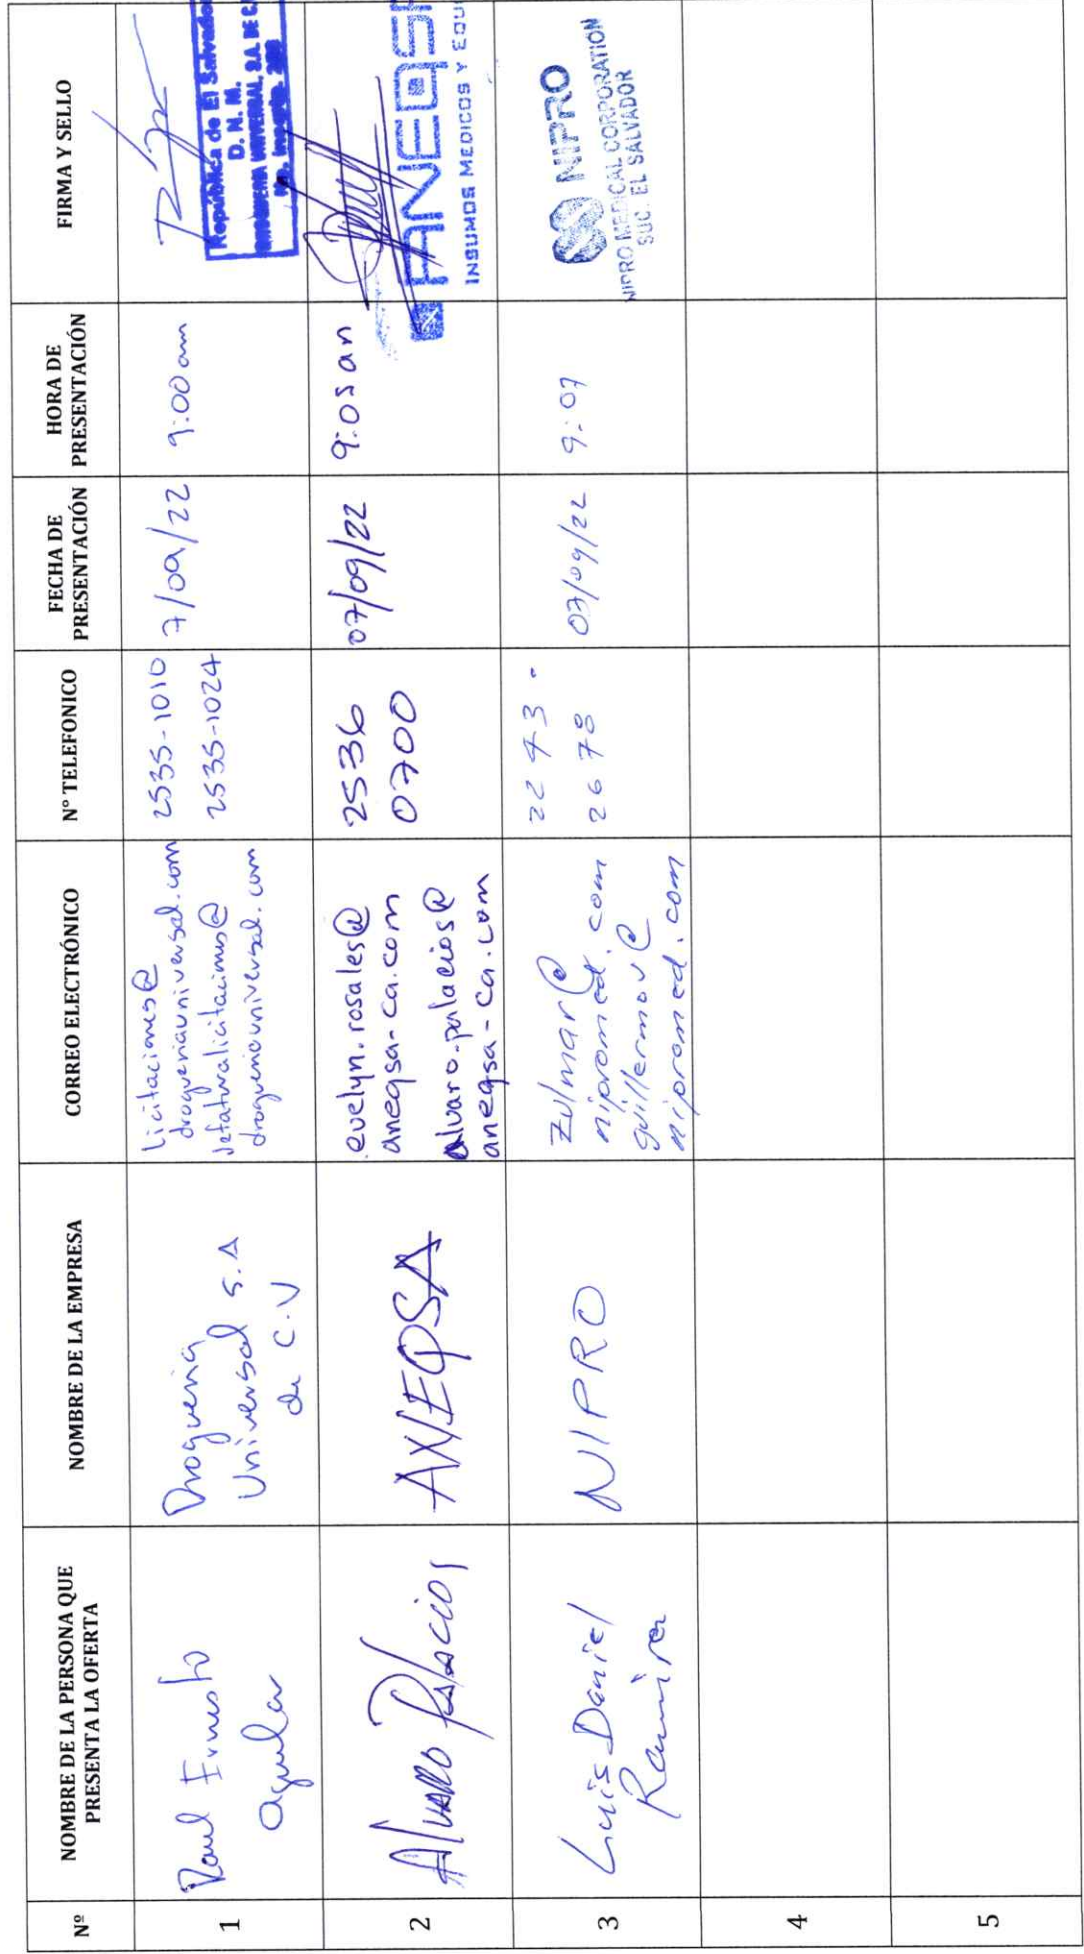 Nº
NOMBRE DE LA PERSONA QUE
PRESENTA LA OFERTA
NOMBRE DE LA EMPRESA
CORREO ELECTRÓNICO
N° TELEFONICO
FECHA DE
PRESENTACIÓN
HORA DE
PRESENTACIÓN
FIRMA Y SELLO
1
Raul Ernesto
Aguilar
Drogueria
Universal S.A
de C.V
licitaciones@
drogueriauniversal.com
jefaturalicitaciones@
drogueriauniversal.com
2535-1010
2535-1024
7/09/22
9:00 am
República de El Salvador
D. N. M.
DROGUERIA UNIVERSAL, S.A. DE C.
No. Inscrip.
2
Alvaro Palacios
ANEQSA
evelyn.rosales@
aneqsa-ca.com
alvaro.palacios@
aneqsa-ca.com
2536
0700
07/09/22
9:05 am
ANEQS
INSUMOS MEDICOS Y EQU
3
Luis Daniel
Ramirez
NIPRO
Zulmar@
nipromed.com
guillermov@
nipromed.com
2243-
2678
07/09/22
9:07
NIPRO
NIPRO MEDICAL CORPORATION
SUC. EL SALVADOR
4
5